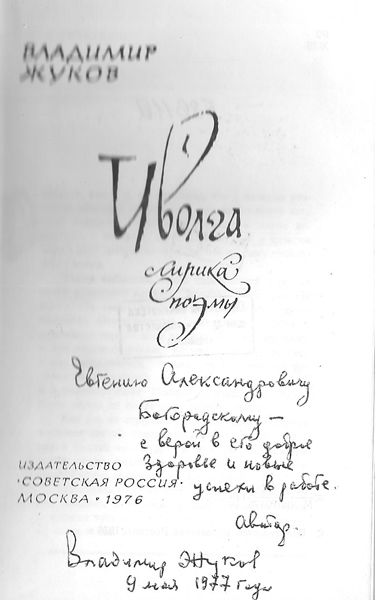 ВЛАДИМИР
ЖУКОВ
Иволга
лирика
поэмы
Евгению Александровичу
Богородскому —
с верой в его доброе
здоровье и новые
успехи в работе.
Автор.
ИЗДАТЕЛЬСТВО
"СОВЕТСКАЯ РОССИЯ"
МОСКВА • 1976
Владимир Жуков
9 мая 1977 года